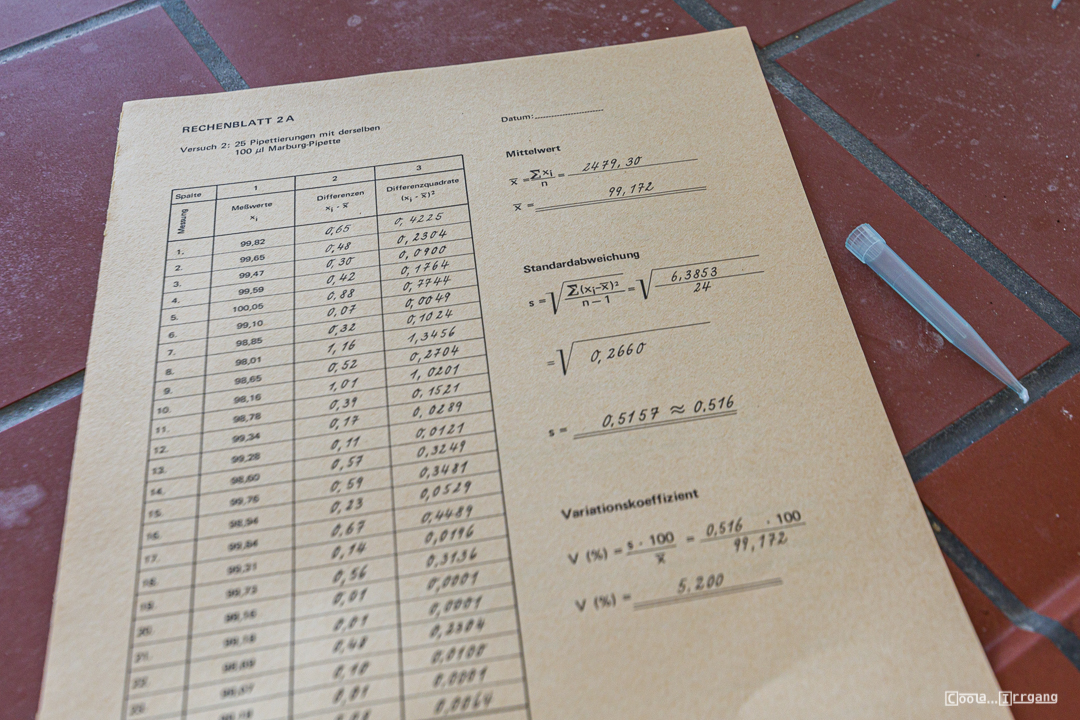 RECHENBLATT 2 A
Versuch 2: 25 Pipettierungen mit derselben
100 µl Marburg-Pipette
Spalte 1 2 3
Messung Meßwerte Differenzen Differenzquadrate
xᵢ xᵢ - x̅ (xᵢ - x̅)²
1. 99,82 0,65 0,4225
2. 99,65 0,48 0,2304
3. 99,47 0,30 0,0900
4. 99,59 0,42 0,1764
5. 100,05 0,88 0,7744
6. 99,10 0,07 0,0049
7. 98,85 0,32 0,1024
8. 98,01 1,16 1,3456
9. 98,65 0,52 0,2704
10. 98,16 1,01 1,0201
11. 98,78 0,39 0,1521
12. 99,34 0,17 0,0289
13. 99,28 0,11 0,0121
14. 98,60 0,57 0,3249
15. 99,76 0,59 0,3481
16. 98,94 0,23 0,0529
17. 99,84 0,67 0,4489
18. 99,31 0,14 0,0196
19. 99,73 0,56 0,3136
20. 0,01 0,0001
21. 0,01 0,0001
22. 0,48 0,2304
0,10 0,0100
0,01 0,0001
0,0064
Datum:
Mittelwert
x̅ = Σxᵢ / n = 2479,30
x̅ = 99,172
Standardabweichung
s = √ Σ(xᵢ-x̅)² / n − 1 = √ 6,3853 / 24
= √ 0,2660
s = 0,5157 ≈ 0.516
Variationskoeffizient
V (%) = s · 100 / x̅ = 0,516 · 100 / 99,172
V (%) = 5.200
Coola...Irrgang